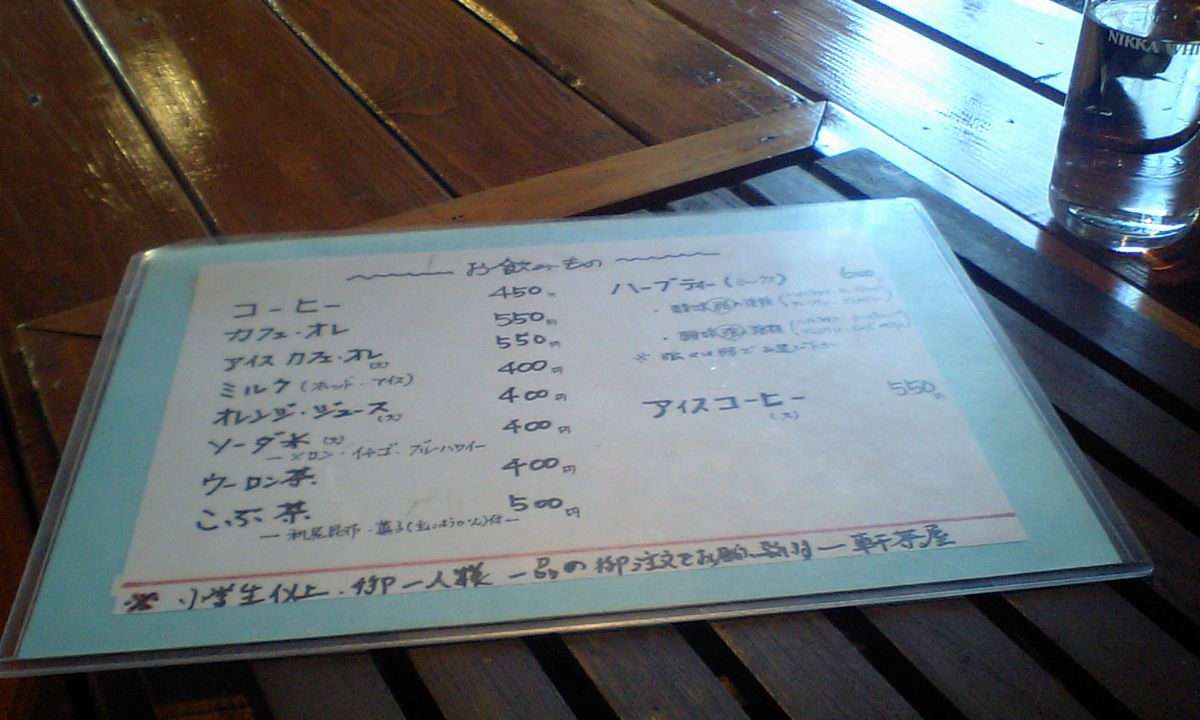 お飲みもの
コーヒー 450円
カフェ・オレ 550円
アイス カフェ・オレ 550円
ミルク (ホット・アイス) 400円
オレンジ・ジュース 400円
ソーダ水 400円
メロン・イチゴ・ブルーハワイ
ウーロン茶 400円
こぶ茶 500円
ハーブティー 600
・酸味
・酸味
アイスコーヒー 550円
※ 小学生以上、御一人様 一品の御注文でお願い致します 一軒茶屋
NIKKA WHI